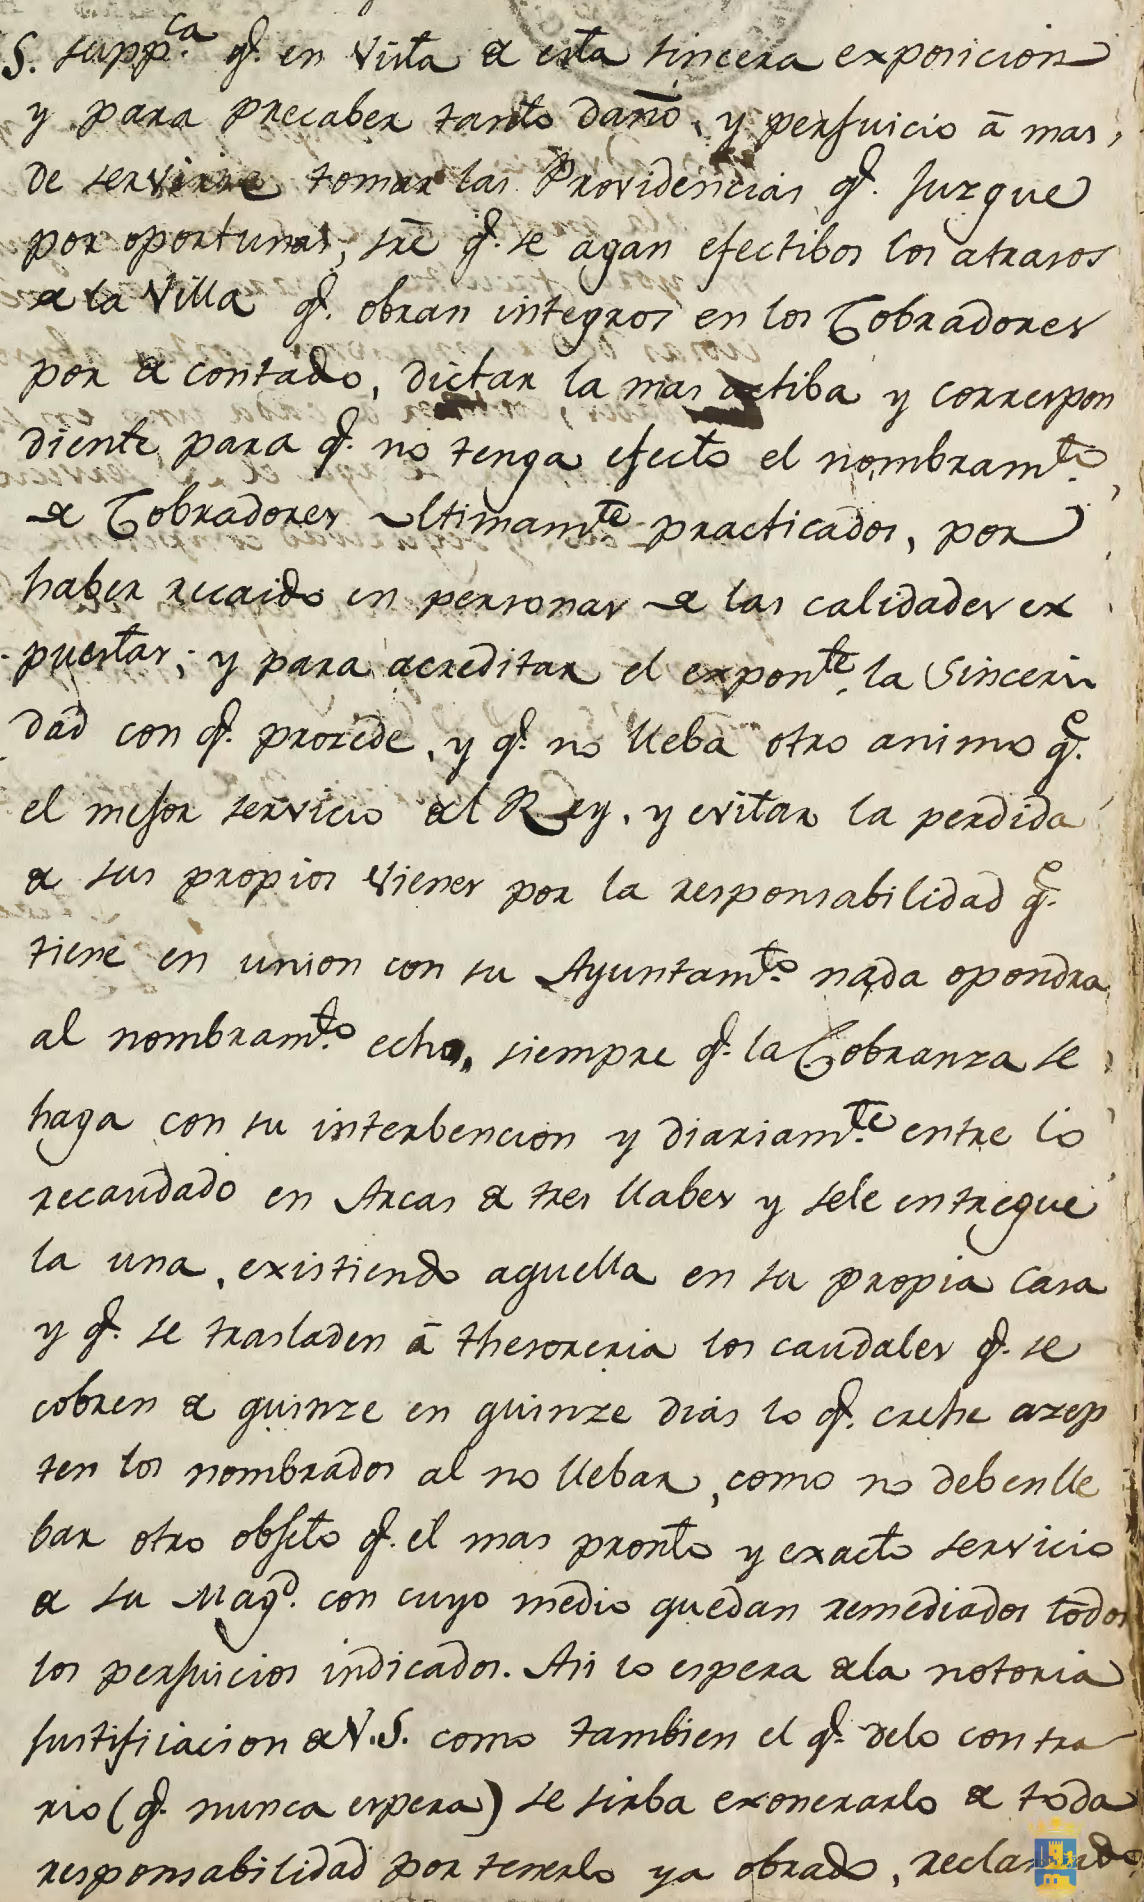 S. supp.ca q.e en vista de esta sincera exposicion
y para precaber tanto daño, y perjuicio â mas
de servirse tomar las Providencias q.e juzgue
por oportunas, sre q.e se agan efectibos los atrasos
de la Villa q.e obran integros en los Cobradores
por de contado, dictar la mas actiba y correspon
diente para q.e no tenga efecto el nombram.to
de Cobradores ultimam.te practicados, por
haber recaido en personas de las calidades ex
puestas; y para acreditar el expon.te la Sinceri
dad con q.e procede, y q.e no lleba otro animo q.e
el mejor servicio del Rey, y evitar la perdida
de sus propios vienes por la responsabilidad q.e
tiene en union con su Ayuntam.to nada opondra
al nombram.to echo, siempre q.e la Cobranza se
haga con su interbencion y diariam.te entre lo
recaudado en Arcas de tres llabes y sele entregue
la una, existiendo aquella en su propia casa
y q.e se trasladen â thesoreria los caudales q.e se
cobren de quinze en quinze dias lo q.e crehe azep
ten los nombrados al no llebar, como no deben lle
bar otro objeto q.e el mas pronto y exacto servicio
de su Mag.d con cuyo medio quedan remediados todos
los perjuicios indicados. Asi lo espera dela notoria
justificacion de V.S. como tambien el q.e delo contra
rio (q.e nunca espera) se sirba exonerarlo de toda
responsabilidad por tenerlo ya obrado, reclamando